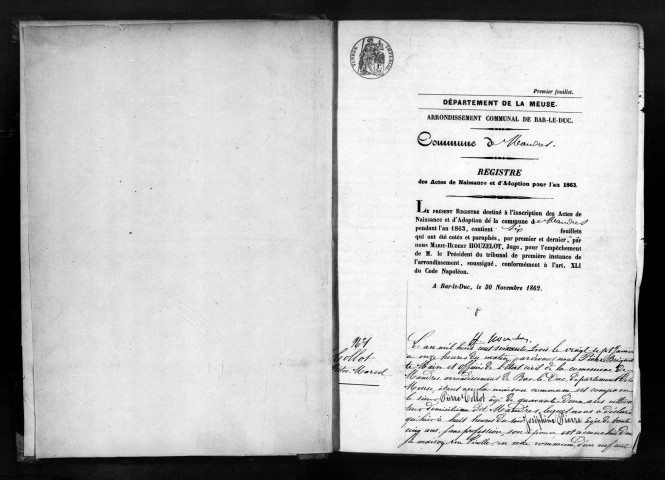 TIMBRE IMPERIAL
Premier feuillet.
DÉPARTEMENT DE LA MEUSE.
ARRONDISSEMENT COMMUNAL DE BAR-LE-DUC.
Commune de Mandres.
REGISTRE
des Actes de Naissance et d'Adoption pour l'an 1863.
LE PRÉSENT REGISTRE destiné à l'inscription des Actes de
Naissance et d'Adoption de la commune de Mandres
pendant l'an 1863, contient six feuillets
qui ont été cotés et paraphés, par premier et dernier, par
nous MARIE-HUBERT HOUZELOT, Juge, pour l'empêchement
de M. le Président du tribunal de première instance de
l'arrondissement, soussigné, conformément à l'art. XLI
du Code Napoléon.
A Bar-le-Duc, le 30 Novembre 1862.
N° 1
Collot
Marcel
L'an mil huit cent soixante trois le vingt sept Janvier
à onze heures du matin, pardevant nous Pierre
Maire et officier de l'état civil de la commune de
Mandres arrondissement de Bar le Duc, département de la
Meuse, étant en la maison commune est comparu
le sieur Pierre Collot âgé de quarante deux ans
domicilié à Mandres lequel nous a déclaré
qu'hier à huit heures du soir Joséphine Pierre âgée de trente
cinq ans, sans profession, son épouse est accouchée dans
sa maison en cette commune, d'un enfant